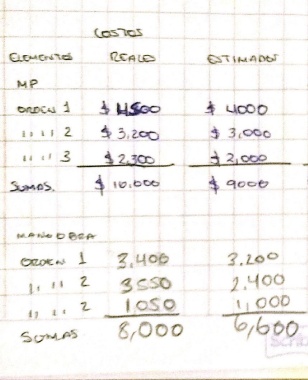 COSTOS
ELEMENTOS REALES ESTIMADOS
MP
ORDEN 1 $ 4500 $ 4000
" " 2 $ 3,200 $ 3,000
" " 3 $ 2,300 $ 2,000
SUMAS. $ 10.000 $ 9000
MANO OBRA
ORDEN 1 3,400 3.200
" " 2 3550 2.400
" " 2 1050 1,000
SUMAS 8,000 6,600